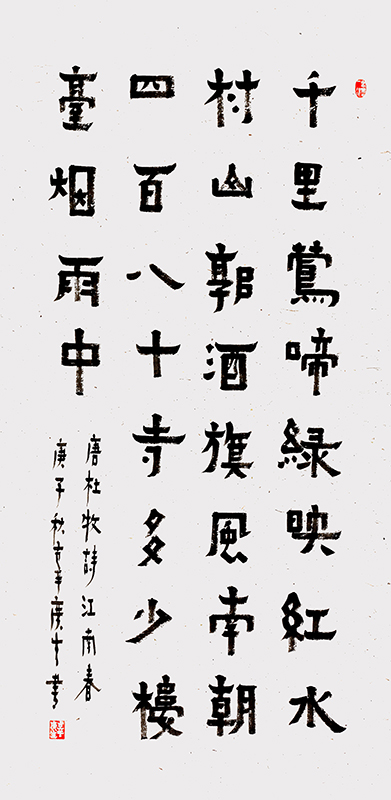 千里鶯啼綠映紅水
村山郭酒旗風南朝
四百八十寺多少樓
臺烟雨中
唐杜牧詩江南春
庚子秋書